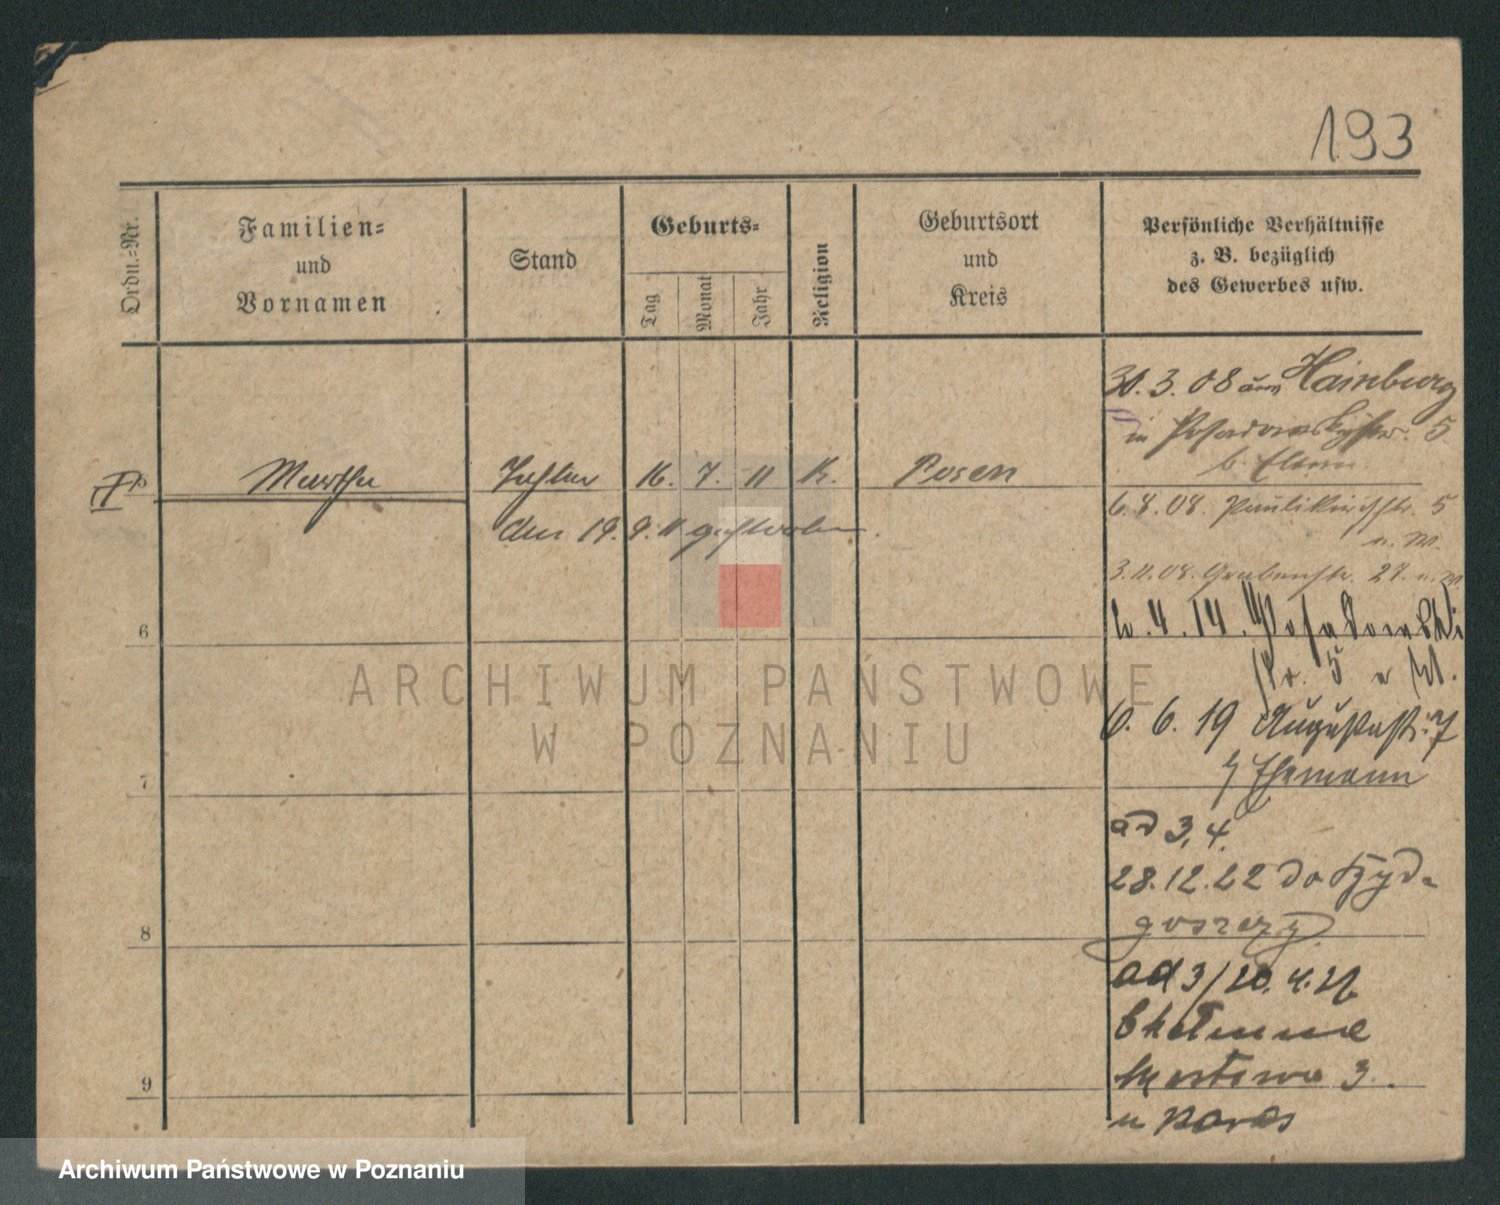 193
Ordn.-Nr.
Familien-
und
Vornamen
Stand
Geburts-
Tag
Monat
Jahr
Religion
Geburtsort
und
Kreis
Persönliche Verhältnisse
z. B. bezüglich
des Gewerbes usw.
30. 3. 08 aus Hamburg
in Posadowskystr. 5
b. Eltern
5 Martha Tochter 16. 7. 11 K. Posen
den 19. 9. 11 gestorben.
6. 8. 08. Paulikirchstr. 5
u. M.
3. 11. 08. Grabenstr. 27. u. M
6
4. 14. Posadowski
str. 5 u M.
6. 6. 19 Augustastr. 7
Ehemann
7
ad 3, 4.
28. 12. 22 do Byd-
goszczy
8
ad 3/20. 4.
Chełmna
3.
9
ARCHIWUM PAŃSTWOWE
W POZNANIU
Archiwum Państwowe w Poznaniu